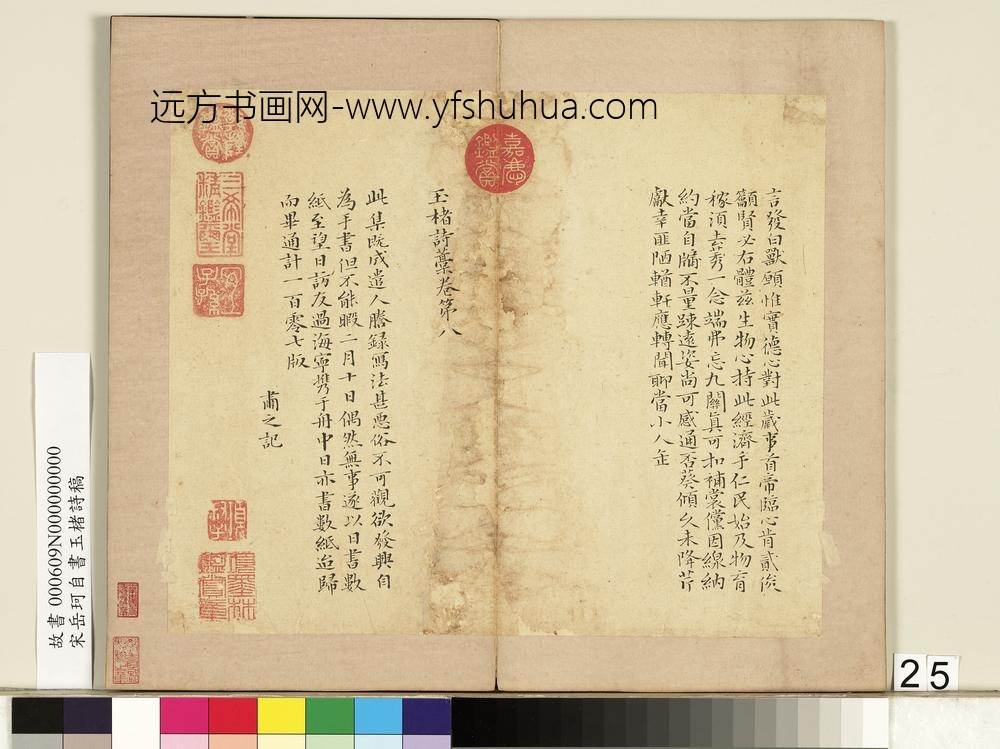 远方书画网-www.yfshuhua.com
言發曰獸頤惟實德心對此歲事首帝臨心肯貳俊
籲賢必右體茲生物心持此經濟手仁民始及物育
稼須去莠一念端弗忘九關真可扣補裳儻因線納
約當自牖不量踈遠姿尚可感通否葵傾久未降芹
獻幸匪陋輶軒應轉聞聊當小人缶
玉楮詩藁卷第八
此集既成遣人謄録寫法甚悪俗不可觀欲發興自
為手書但不能暇二月十日偶然無事遂以日書數
紙至望日訪友過海寧攜于舟中日亦書數紙迨歸
而畢通計一百零七版
肅之記
嘉慶鑑賞
故書 000609N000000000
宋岳珂自書玉楮詩稿
25